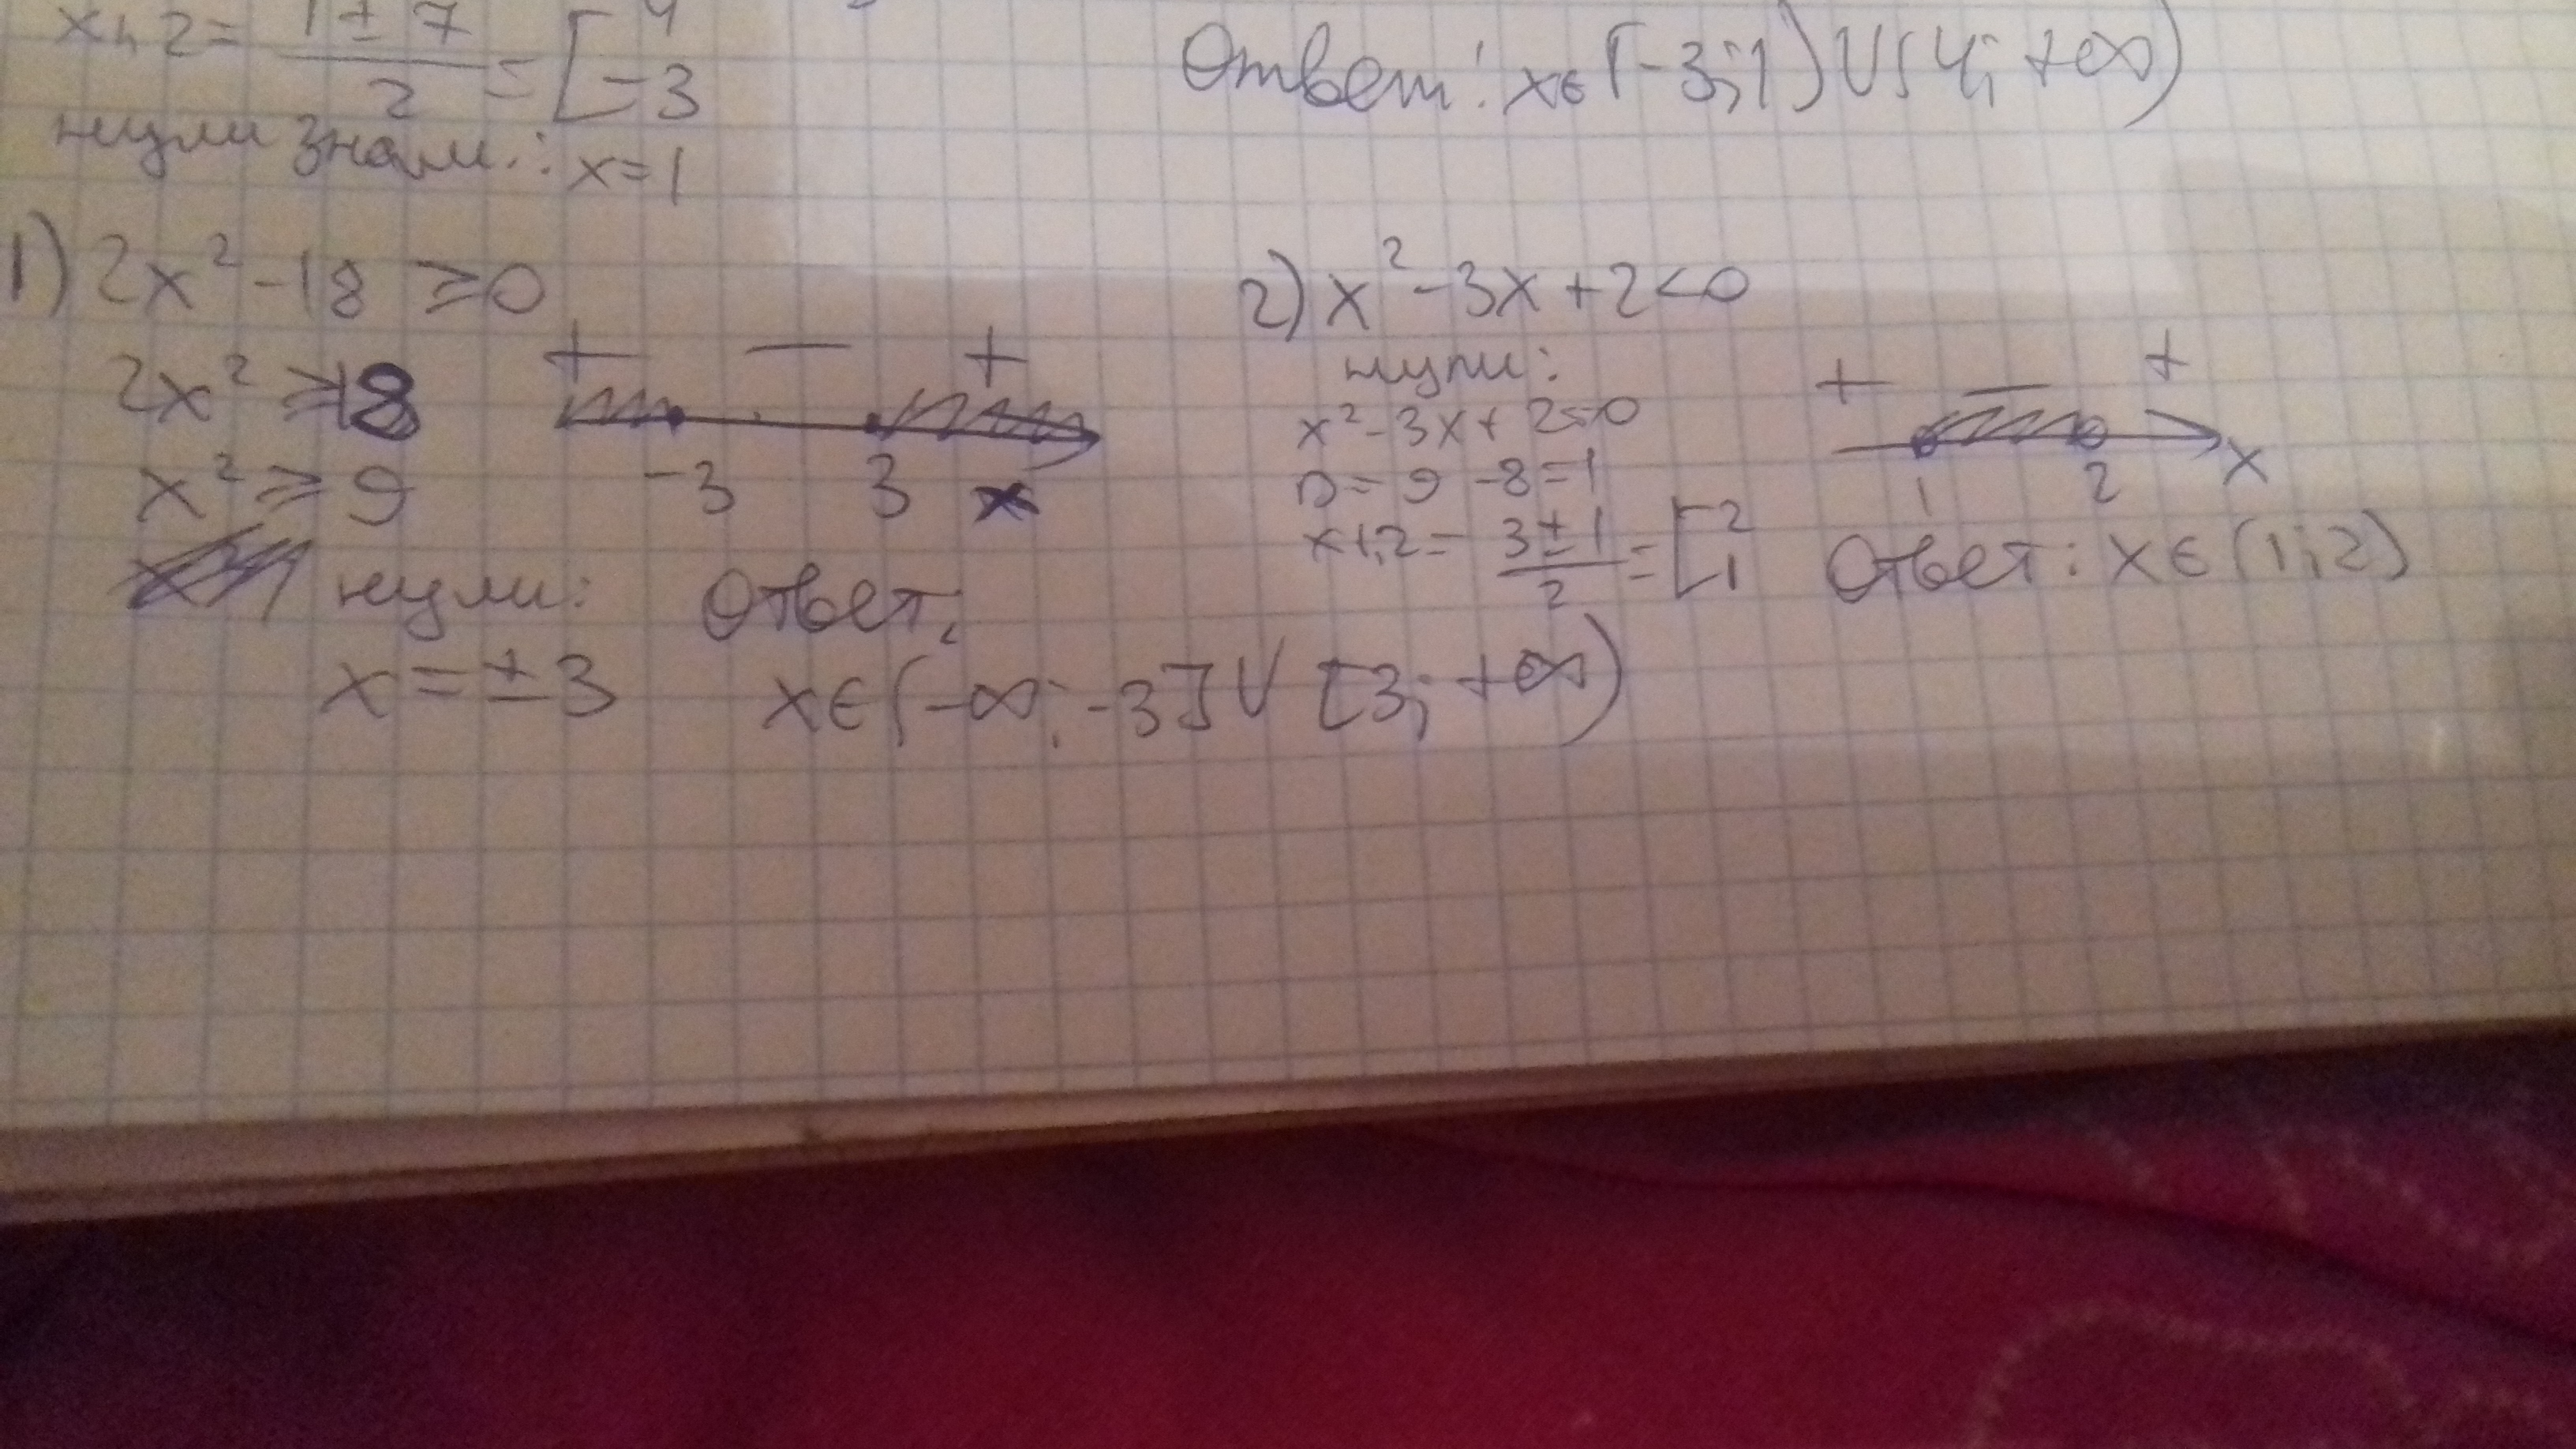 x1,2 = (1 ± 7)/2 = [4 -3
нули знам.: x=1
Ответ: x∈[-3;1)∪(4; +∞)
1) 2x²-18 ≥0
2x² ≥18
x² ≥ 9
+ − +
-3 3 x
нули:
x = ±3
Ответ:
x∈(-∞; -3]∪[3; +∞)
2) x²-3x+2<0
нули:
x²-3x+2=0
D = 9 -8=1
x1,2 = (3±1)/2 = [2 1
+ − +
1 2 x
Ответ: x∈(1;2)